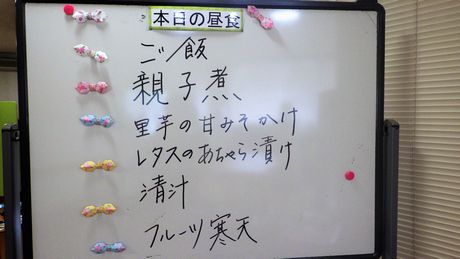 本日の昼食
ご飯
親子煮
里芋の甘みそかけ
レタスのあちゃら漬け
清汁
フルーツ寒天